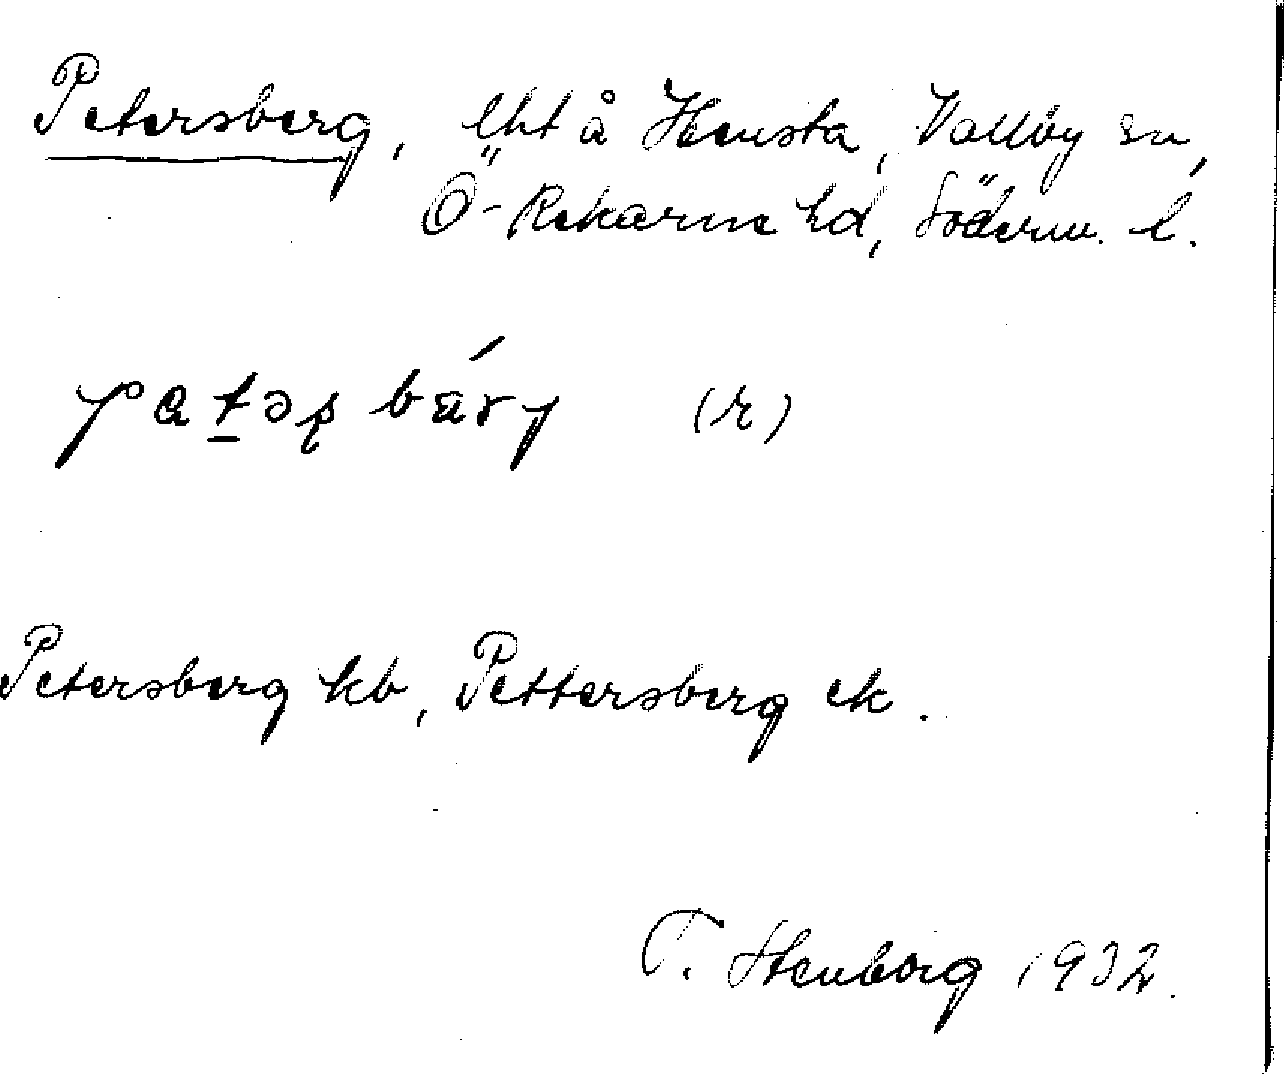 Petersberg, lht å Hensta, Vallby sn,
Ö-Rekarne hd, Söderm. l.
pɑtəʂ bárɡ (r)
Petersberg kb, Pettersberg ek.
T. Stenborg 1932.